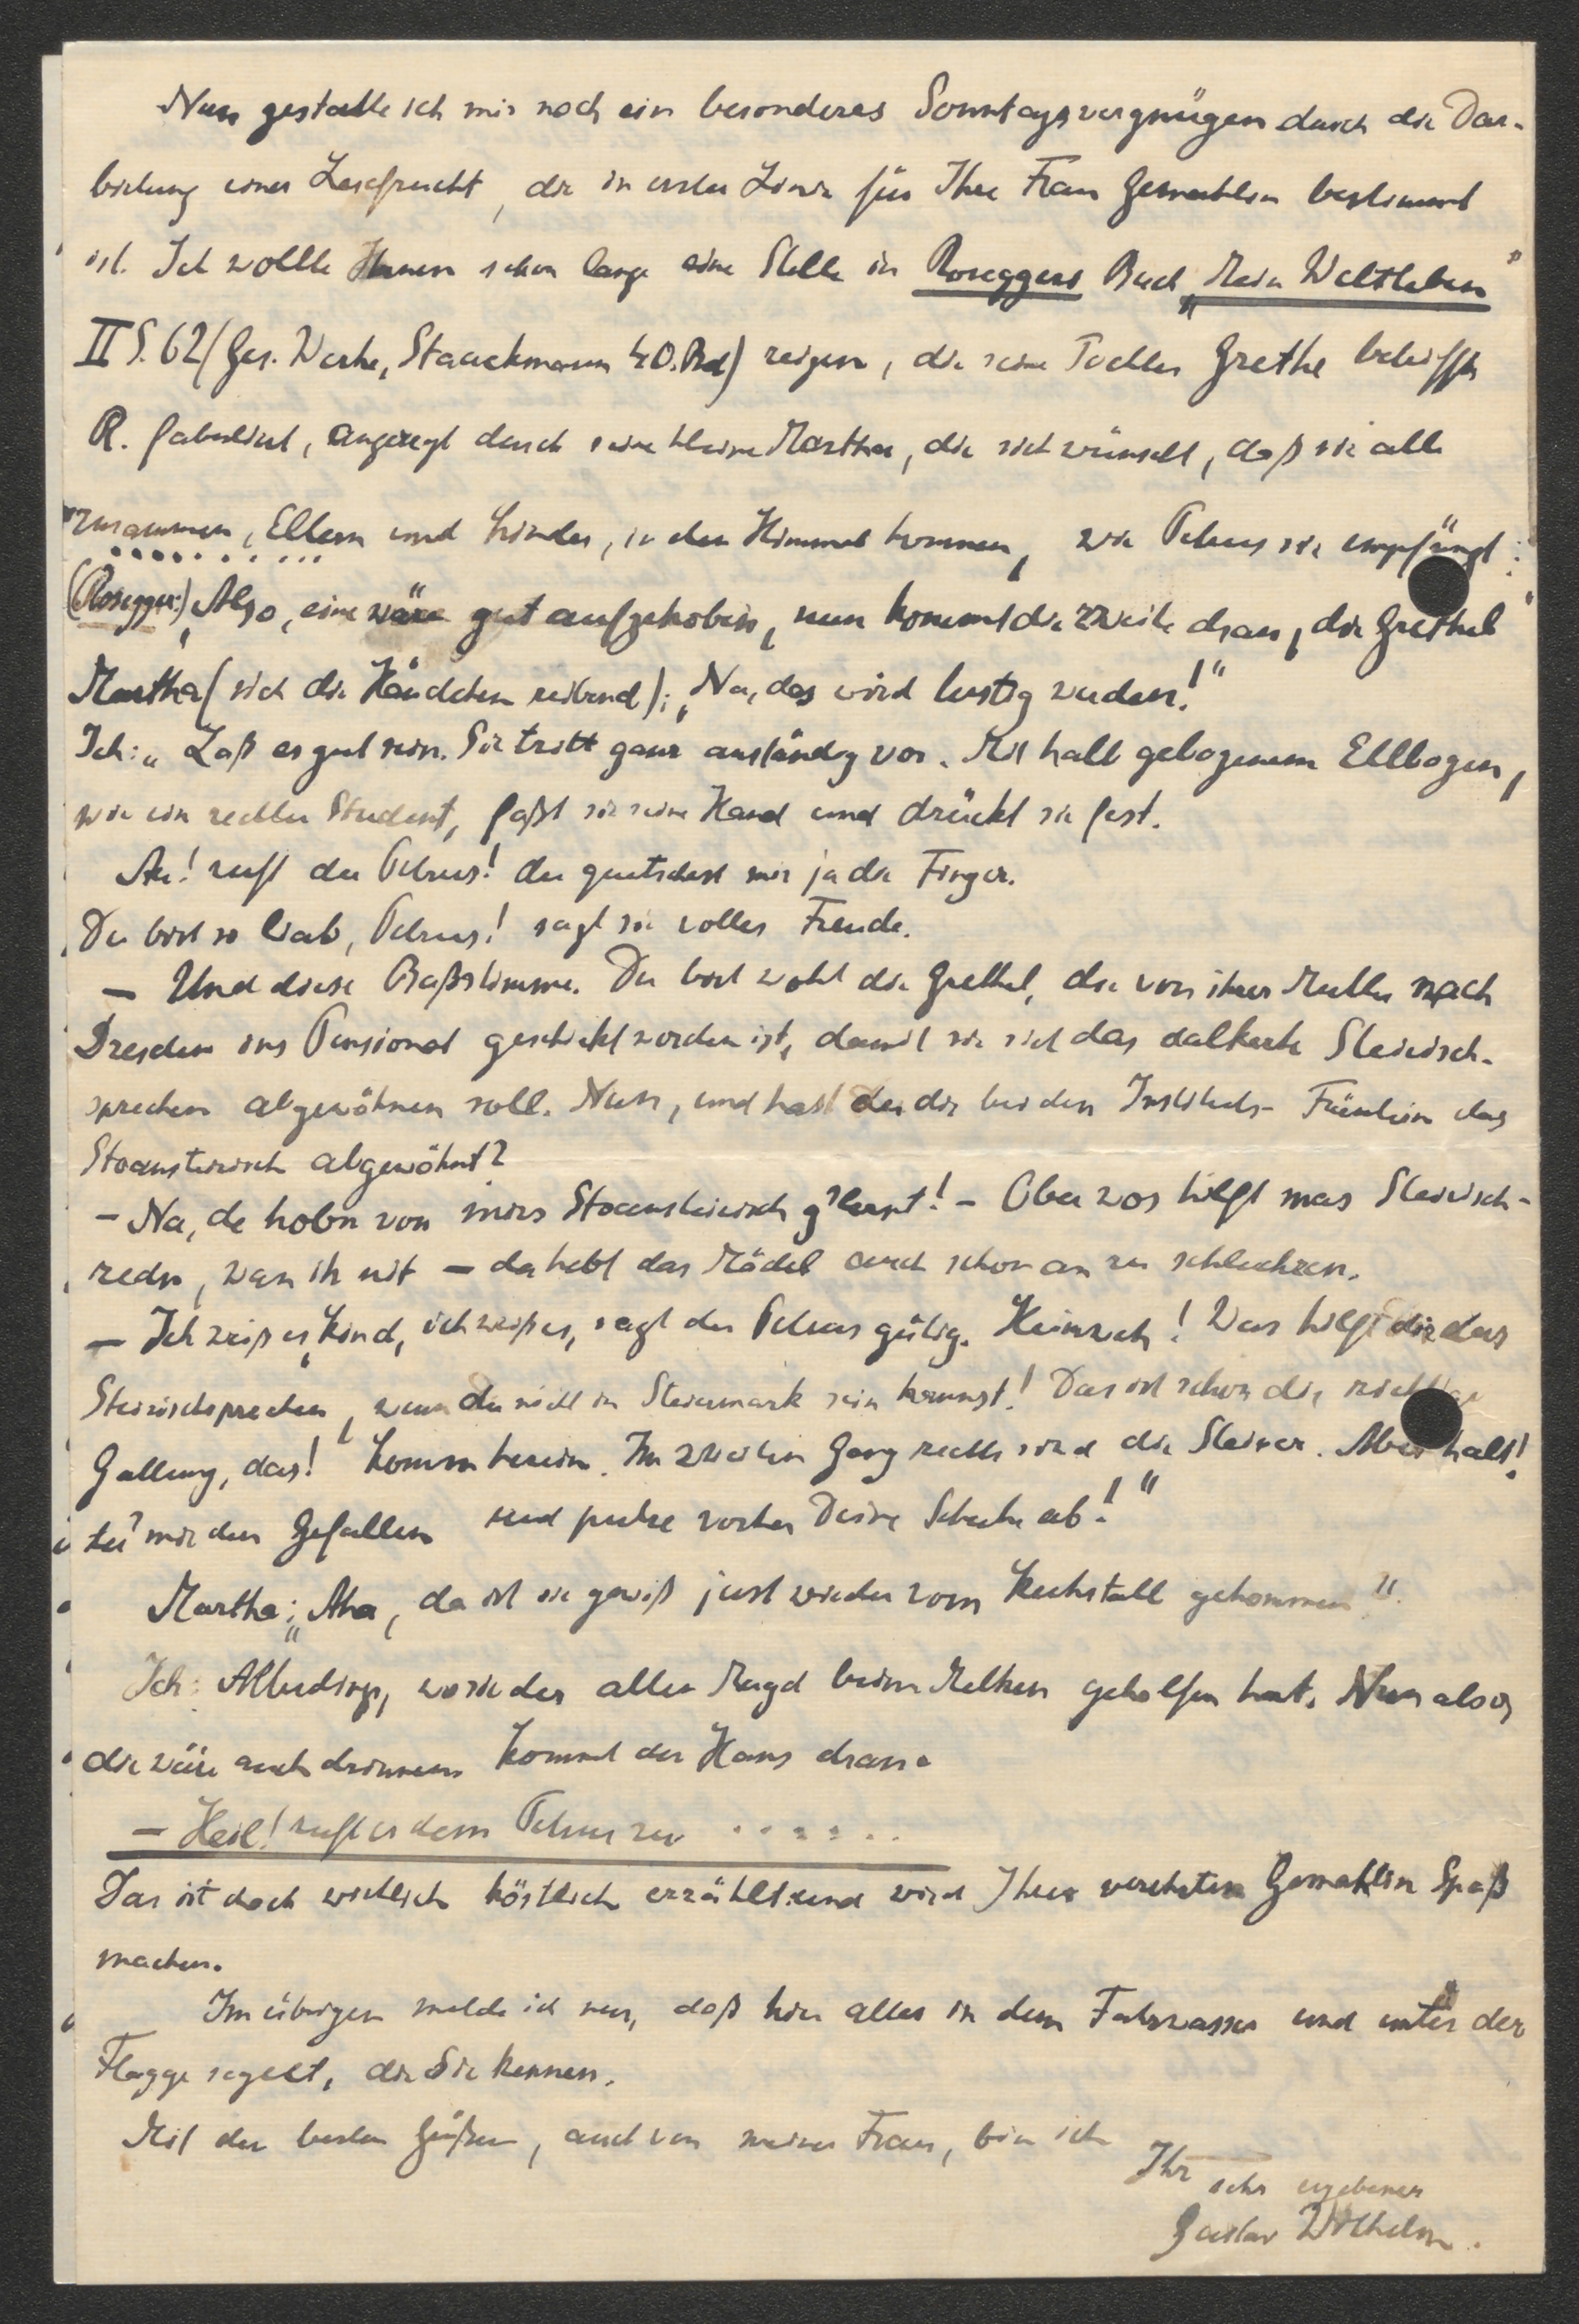 Nun gestatte ich mir noch ein besonderes Sonntagsvergnügen durch die Dar-
bietung einer Lesefrucht, die in erster Linie für Ihre Frau Gemahlin bestimmt
ist. Ich wollte Ihnen schon lange eine Stelle in Roseggers Buch „Mein Weltleben"
II S. 62 (Ges. Werke, Staackmann 40. Bd) zeigen, die seine Tochter Grethe betrifft.
R. fabuliert, angeregt durch seine kleine Martha, die sich wünscht, daß sie alle
zusammen, Eltern und Kinder, in den Himmel kommen, wie Petrus sie empfängt:
..........
(Rosegger:) „Also, eine wäre gut aufgehoben, nun kommt die zweite dran, die Grethel"
Martha (sich die Händchen reibend): „Na, das wird lustig werden!"
Ich: „Laß es gut sein. Sie tritt ganz anständig vor. Mit halb gebogenem Ellbogen,
wie ein rechter Student, faßt sie seine Hand und drückt sie fest.
Au! ruft der Petrus! du quetschest mir ja die Finger.
Du bist so liab, Petrus! sagt sie voller Freude.
— Und diese Baßstimme. Du bist wohl die Grethel, die von ihrer Mutter nach
Dresden ins Pensionat geschickt worden ist, damit sie sich das dalkerte Steirisch-
sprechen abgewöhnen soll. Nun, und hast du dir bei den Instituts-Fräulein das
Stoansteirisch abgewöhnt?
– Na, de hobn von mirs Stoansteirisch g'lernt! – Ober wos hilft mas Steirisch-
redn, wan ih nit — da hebt das Mädel auch schon an zu schluchzen.
— Ich weiß es, Kind, ich weiß es, sagt der Petrus gütig. Heimweh! Was hilft dir das
Steirischsprechen, wenn du nicht in Steiermark sein kannst! Das ist schon die richtige
Gattung, das! Komm herein. Im zweiten Gang rechts sind die Steirer. Aber halt!
tu' mir den Gefallen und putze vorher Deine Schuhe ab!"
Martha: „Aha, da ist sie gewiß just wieder vom Kuhstall gekommen".
Ich: Allerdings, wo sie der alten Magd beim Melken geholfen hat. Nun also,
die wäre auch drinnen. Kommt der Hans dran.
— Heil! ruft er dem Petrus zu .......
Das ist doch wirklich köstlich erzählt und wird Ihrer verehrten Gemahlin Spaß
machen.
Im übrigen melde ich nur, daß hier alles in dem Fahrwasser und unter der
Flagge segelt, die Sie kennen.
Mit den besten Grüßen, auch von meiner Frau, bin ich
Ihr sehr ergebener
Gustav Wilhelm.